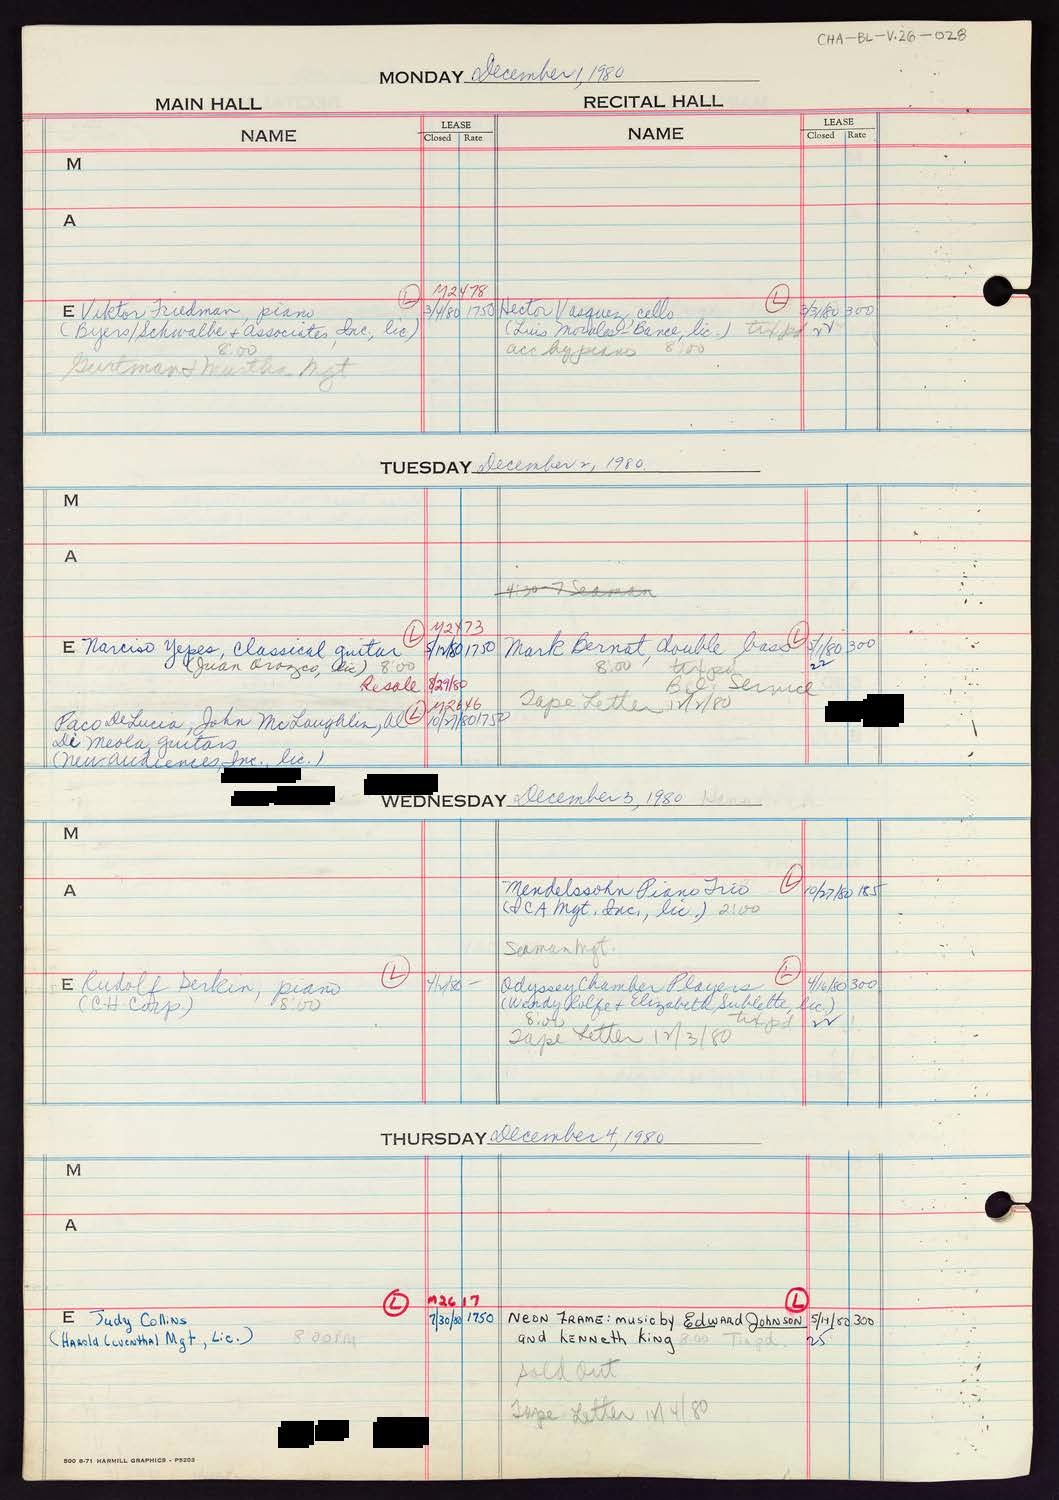 CHA-BL-V.26-028
MONDAY December 1, 1980
MAIN HALL
RECITAL HALL
NAME
LEASE
Closed Rate
NAME
LEASE
Closed Rate
M
A
L M2478
E Viktor Friedman, piano 3/4/80 1750
(Byers/Schwalbe & Associates, Inc, lic)
8:00
Gurtman & Murtha Mgt
L
Hector Vasquez, cello 3/3/80 300
(Luis Morales-Bance, lic.) 22
acc by piano 8:00
TUESDAY December 2, 1980
M
A
4:30-7 Seaman
L M2473
E Narciso Yepes, classical guitar 5/12/80 1750
(Juan Orozco, lic) 8:00
Resale 8/29/80
L M2646
Paco DeLucia, John McLaughlin, Al 10/27/80 1750
Di Meola, guitars
(New Audiences, Inc., lic.)
L
Mark Bernat, double bass 5/1/80 300
8:00 22
Service
Tape Letter 12/2/80
WEDNESDAY December 3, 1980
M
A
L
Mendelssohn Piano Trio 10/27/80 185
(ICA Mgt. Inc., lic.) 2:00
Seaman Mgt.
L
E Rudolf Serkin, piano 4/1/80 -
(CH Corp.) 8:00
L
Odyssey Chamber Players 4/16/80 300
(Wendy Rolfe & Elizabeth Sublette, lic)
8:00 22
Tape Letter 12/3/80
THURSDAY December 4, 1980
M
A
L M2617
E Judy Collins 7/30/80 1750
(Harold Leventhal Mgt, Lic.) 8:00 PM
L
NEON FRAME: music by Edward Johnson 5/14/80 300
and Kenneth King 8:00 25
Sold Out
Tape Letter 12/4/80
500 6-71 HARMILL GRAPHICS - P5203